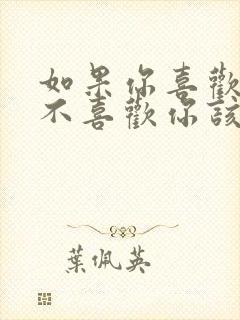 如果你喜歡
不喜歡你該
葉佩英